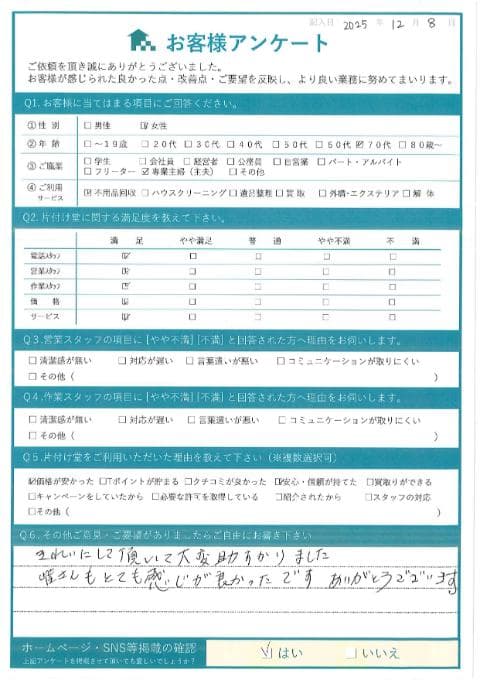 記入日 2025 年 12 月 8 日
お客様アンケート
ご依頼を頂き誠にありがとうございました。
お客様が感じられた良かった点・改善点・ご要望を反映し、より良い業務に努めてまいります。
Q1. お客様に当てはまる項目にご回答ください。
①性 別 □男性 ☑女性
②年 齢 □~19歳 □20代 □30代 □40代 □50代 □60代 ☑70代 □80歳~
③ご職業 □学生 □会社員 □経営者 □公務員 □自営業 □パート・アルバイト
□フリーター ☑専業主婦(主夫) □その他
④ご利用サービス ☑不用品回収 □ハウスクリーニング □遺品整理 □買取 □外構・エクステリア □解体
Q2. 片付け堂に関する満足度を教えて下さい。
満 足 やや満足 普 通 やや不満 不 満
電話スタッフ ☑ □ □ □ □
営業スタッフ ☑ □ □ □ □
作業スタッフ ☑ □ □ □ □
価 格 ☑ □ □ □ □
サービス ☑ □ □ □ □
Q3. 営業スタッフの項目に[やや不満][不満]と回答された方へ理由をお伺いします。
□清潔感が無い □対応が遅い □言葉遣いが悪い □コミュニケーションが取りにくい
□その他( )
Q4. 作業スタッフの項目に[やや不満][不満]と回答された方へ理由をお伺いします。
□清潔感が無い □対応が遅い □言葉遣いが悪い □コミュニケーションが取りにくい
□その他( )
Q5. 片付け堂をご利用いただいた理由を教えて下さい(※複数選択可)
☑価格が安かった □Tポイントが貯まる □クチコミが良かった ☑安心・信頼が持てた □買取りができる
□キャンペーンをしていたから □必要な許可を取得している □紹介されたから □スタッフの対応
□その他( )
Q6. その他ご意見・ご要望がありましたらご自由にお書き下さい
きれいにして頂いて大変助かりました
皆さんもとても感じが良かったです ありがとうございます
ホームページ・SNS等掲載の確認 ☑はい □いいえ
上記アンケートを掲載させて頂いても宜しいでしょうか?